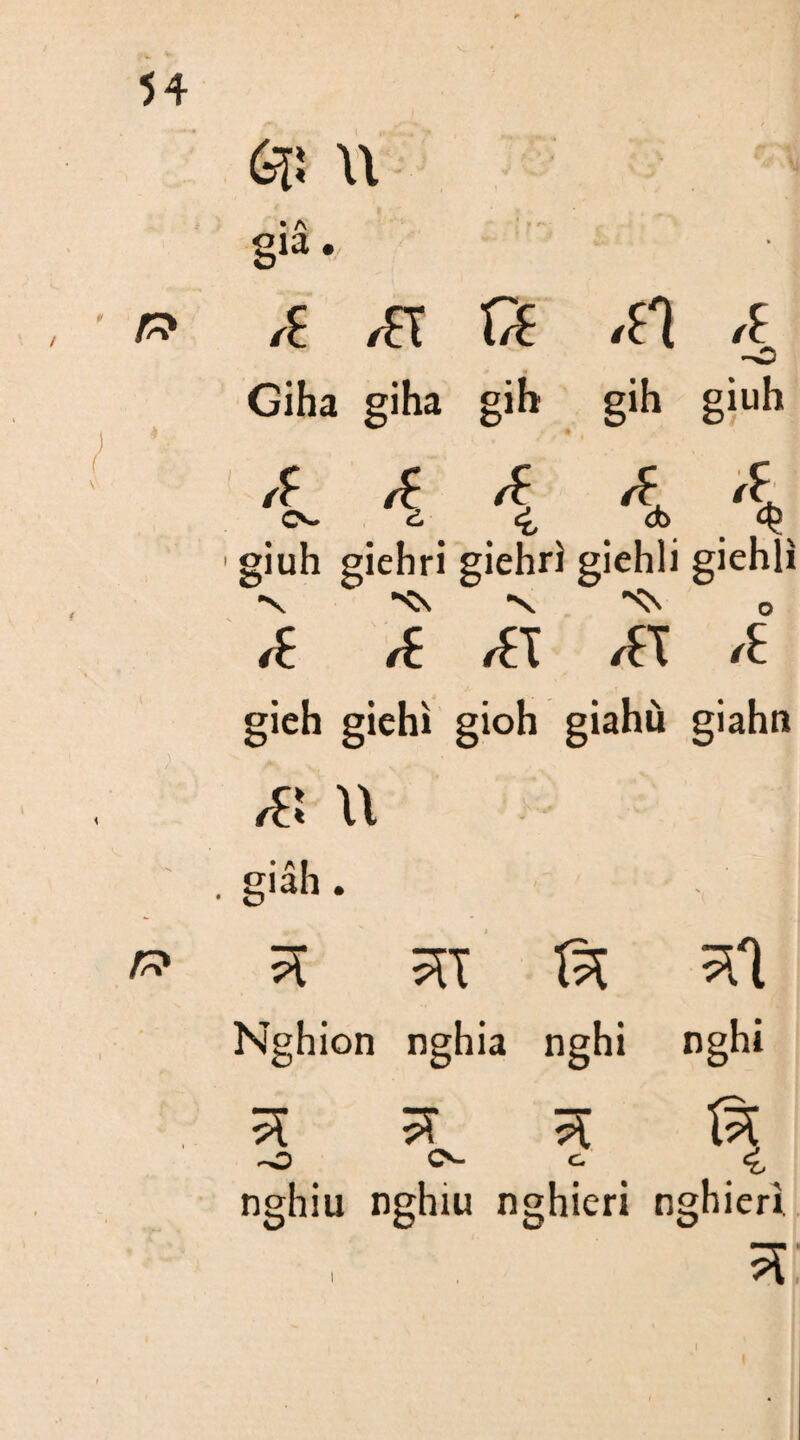 54
जः ॥
giâ .
झ झा झि झी झु
Giha giha gih gih giuh
झू झृ झॄ झॢ झॣ
giuh giehri giehrì giehli giehlì
झे झै झो झौ झं
gieh giehì gioh giahù giahn
झः ॥
giâh .
ञ ञा ञि ञी
Nghion nghia nghi nghi
ञु ञू ञृ ञिॄ
nghiu nghiu nghieri nghierì
ञ